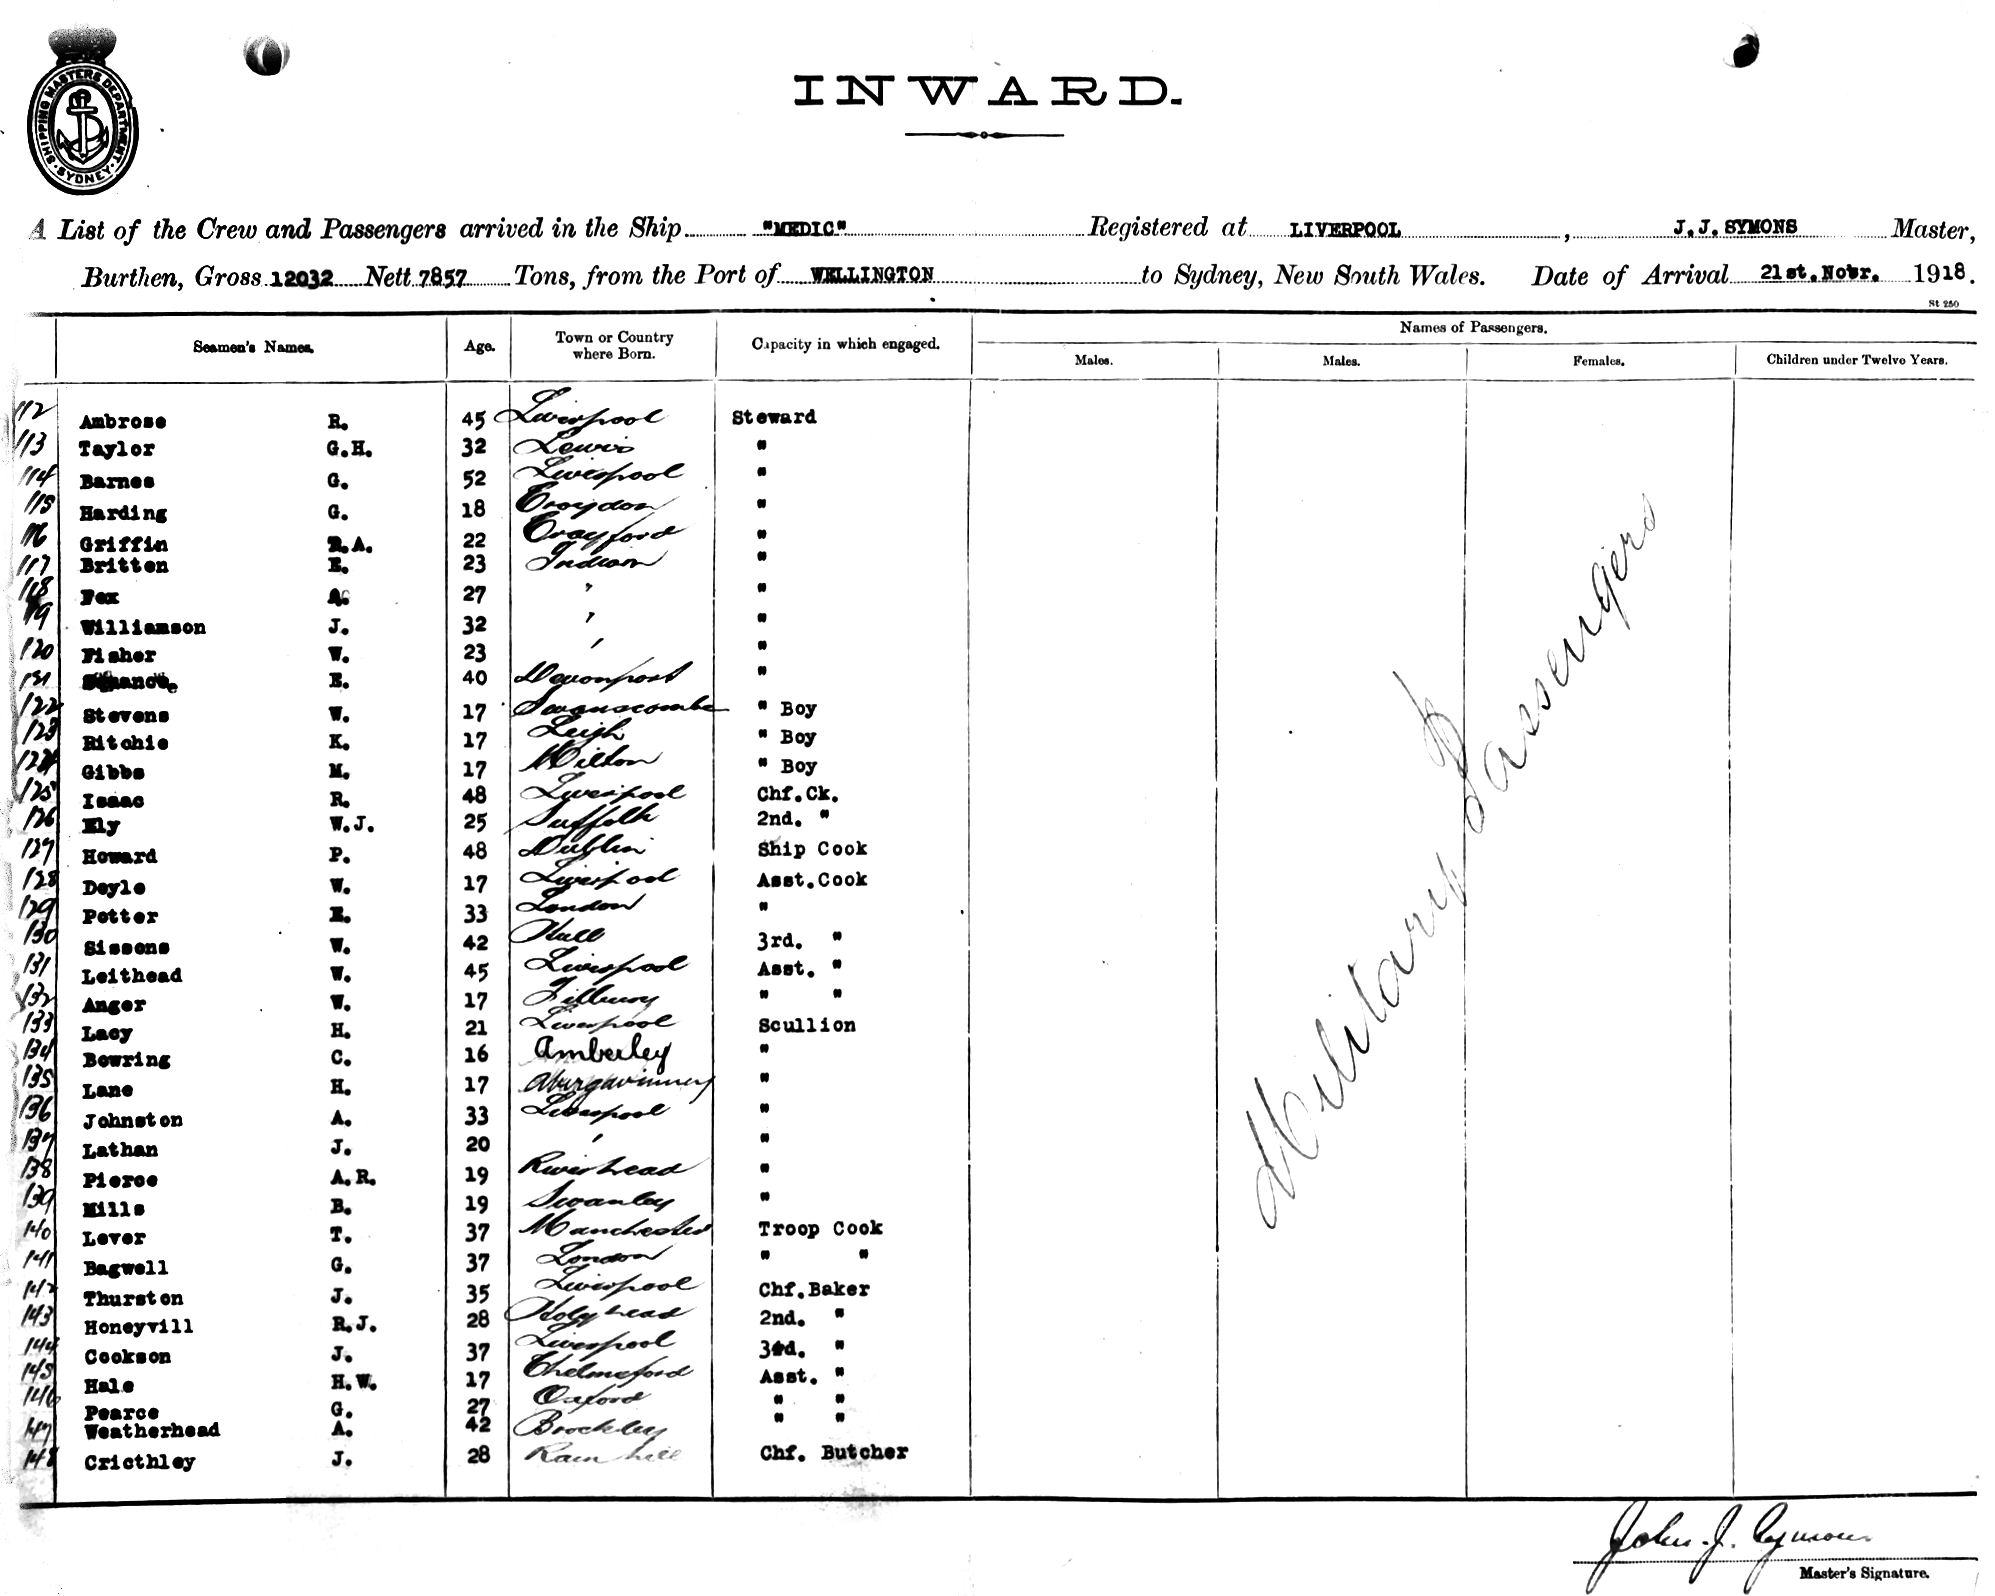 SHIPPING MASTERS DEPARTMENT. SYDNEY.
INWARD.
A List of the Crew and Passengers arrived in the Ship "MEDIC" Registered at LIVERPOOL, J.J.SYMONS Master,
Burthen, Gross 12032 Nett 7857 Tons, from the Port of WELLINGTON to Sydney, New South Wales. Date of Arrival 21st.Novr. 1918.
St 250
Seamen's Names. Age. Town or Country where Born. Capacity in which engaged. Names of Passengers.
Males. Males. Females. Children under Twelve Years.
112 Ambrose R. 45 Liverpool Steward
113 Taylor G.H. 32 Lewis "
114 Barnes G. 52 Liverpool "
115 Harding G. 18 Croydon "
116 Griffin R.A. 22 Crayford "
117 Britten E. 23 Indian "
118 Fox A. 27 " "
119 Williamson J. 32 " "
120 Fisher W. 23 " "
121 E. 40 Devonport "
122 Stevens W. 17 Swanscombe " Boy
123 Ritchie K. 17 Leigh " Boy
124 Gibbs M. 17 Milton " Boy
125 Isaac R. 48 Liverpool Chf.Ck.
126 Ely W.J. 25 Suffolk 2nd. "
127 Howard P. 48 Dublin Ship Cook
128 Doyle W. 17 Liverpool Asst.Cook
129 Potter E. 33 London "
130 Sissons W. 42 Hull 3rd. "
131 Leithead W. 45 Liverpool Asst. "
132 Anger W. 17 Tilbury " "
133 Lacy H. 21 Liverpool Scullion
134 Bowring C. 16 Amberley "
135 Lane H. 17 Abergavinney "
136 Johnston A. 33 Liverpool "
137 Lathan J. 20 " "
138 Pierce A.R. 19 Riverhead "
139 Mills B. 19 Swanley "
140 Lever T. 37 Manchester Troop Cook
141 Bagwell G. 37 London " "
142 Thurston J. 35 Liverpool Chf.Baker
143 Honeyvill R.J. 28 Holyhead 2nd. "
144 Cookson J. 37 Liverpool 3rd. "
145 Hale H.W. 17 Chelmsford Asst. "
146 Pearce G. 27 Oxford " "
147 Weatherhead A. 42 Brockley " "
148 Cricthley J. 28 Rain hill Chf. Butcher
Military Passengers
John. J. Symons
Master's Signature.